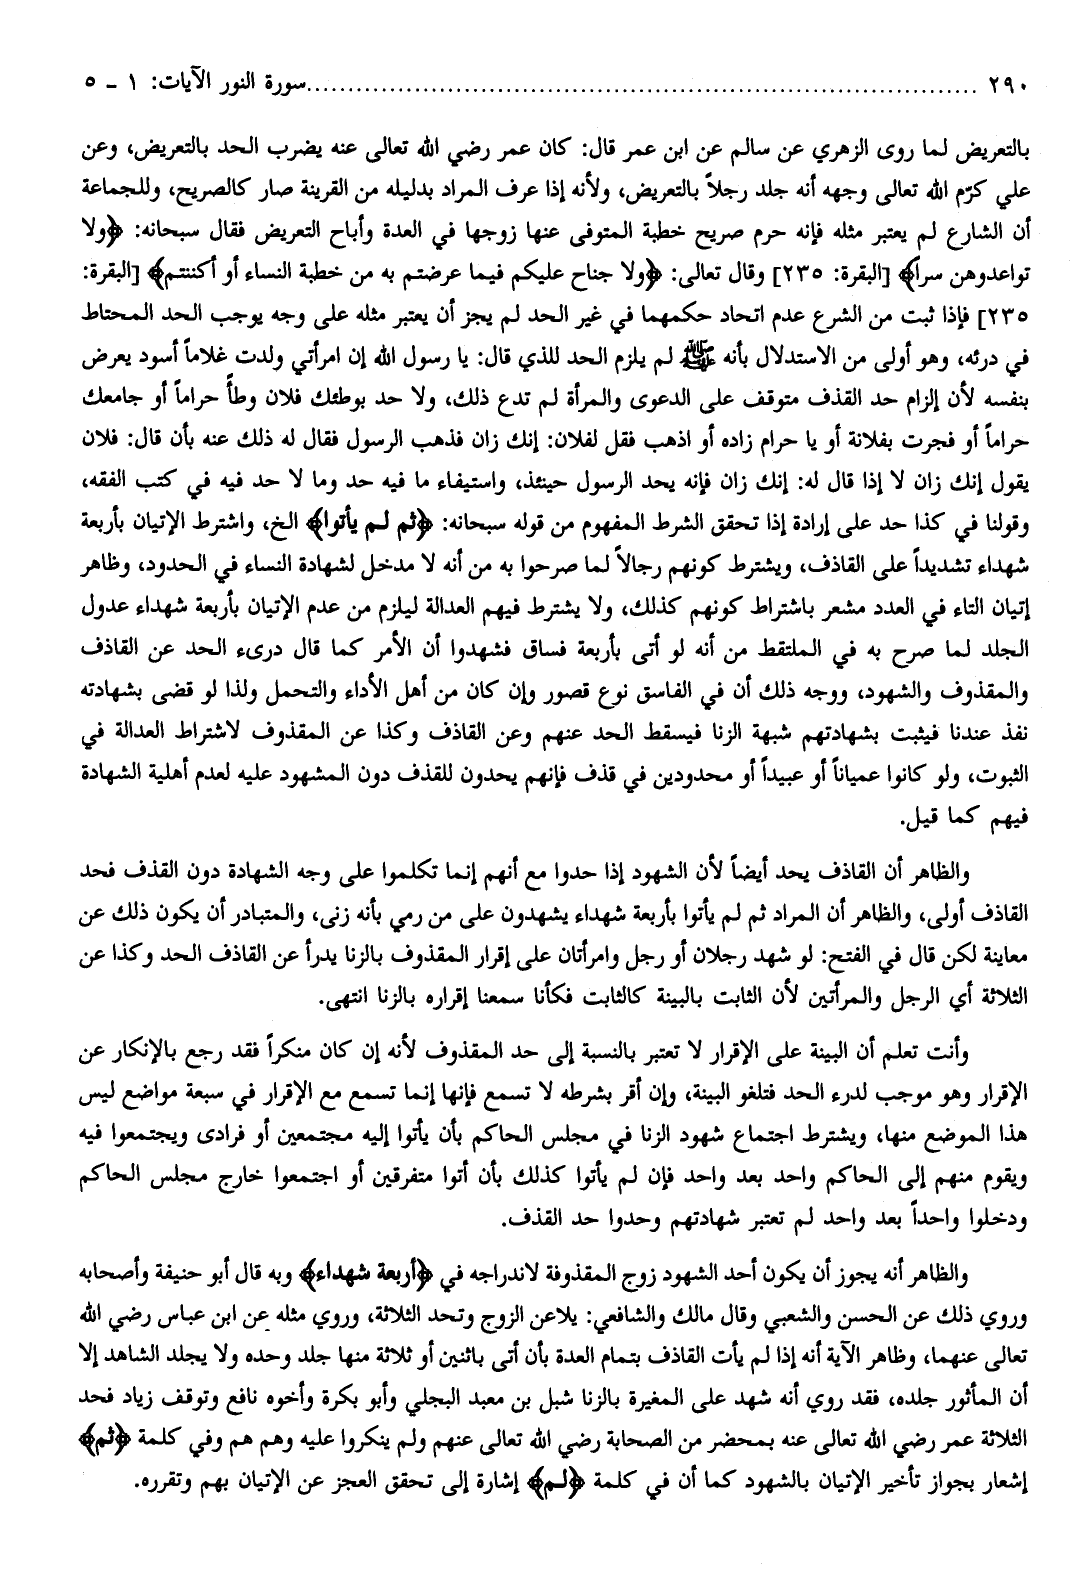 ٢٩٠ ................................................................................ سورة النور الآيات: ١ ـ ٥
بالتعريض لما روى الزهري عن سالم عن ابن عمر قال: كان عمر رضي الله تعالى عنه يضرب الحد بالتعريض، وعن
علي كرّم الله تعالى وجهه أنه جلد رجلاً بالتعريض، ولأنه إذا عرف المراد بدليله من القرينة صار كالصريح، وللجماعة
أن الشارع لم يعتبر مثله فإنه حرم صريح خطبة المتوفى عنها زوجها في العدة وأباح التعريض فقال سبحانه: ﴿ولا
تواعدوهن سراً﴾ [البقرة: ٢٣٥] وقال تعالى: ﴿ولا جناح عليكم فيما عرضتم به من خطبة النساء أو أكننتم﴾ [البقرة:
٢٣٥] فإذا ثبت من الشرع عدم اتحاد حكمهما في غير الحد لم يجز أن يعتبر مثله على وجه يوجب الحد المحتاط
في درئه، وهو أولى من الاستدلال بأنه ﷺ لم يلزم الحد للذي قال: يا رسول الله إن امرأتي ولدت غلاماً أسود يعرض
بنفسه لأن إلزام حد القذف متوقف على الدعوى والمرأة لم تدع ذلك، ولا حد بوطئك فلان وطأً حراماً أو جامعك
حراماً أو فجرت بفلانة أو يا حرام زاده أو اذهب فقل لفلان: إنك زان فذهب الرسول فقال له ذلك عنه بأن قال: فلان
يقول إنك زان لا إذا قال له: إنك زان فإنه يحد الرسول حينئذ، واستيفاء ما فيه حد وما لا حد فيه في كتب الفقه،
وقولنا في كذا حد على إرادة إذا تحقق الشرط المفهوم من قوله سبحانه: ﴿ثم لم يأتوا﴾ الخ، واشترط الإتيان بأربعة
شهداء تشديداً على القاذف، ويشترط كونهم رجالاً لما صرحوا به من أنه لا مدخل لشهادة النساء في الحدود، وظاهر
إتيان التاء في العدد مشعر باشتراط كونهم كذلك، ولا يشترط فيهم العدالة ليلزم من عدم الإتيان بأربعة شهداء عدول
الجلد لما صرح به في الملتقط من أنه لو أتى بأربعة فساق فشهدوا أن الأمر كما قال درىء الحد عن القاذف
والمقذوف والشهود، ووجه ذلك أن في الفاسق نوع قصور وإن كان من أهل الأداء والتحمل ولذا لو قضى بشهادته
نفذ عندنا فيثبت بشهادتهم شبهة الزنا فيسقط الحد عنهم وعن القاذف وكذا عن المقذوف لاشتراط العدالة في
الثبوت، ولو كانوا عمياناً أو عبيداً أو محدودين في قذف فإنهم يحدون للقذف دون المشهود عليه لعدم أهلية الشهادة
فيهم كما قيل.
والظاهر أن القاذف يحد أيضاً لأن الشهود إذا حدوا مع أنهم إنما تكلموا على وجه الشهادة دون القذف فحد
القاذف أولى، والظاهر أن المراد ثم لم يأتوا بأربعة شهداء يشهدون على من رمي بأنه زنى، والمتبادر أن يكون ذلك عن
معاينة لكن قال في الفتح: لو شهد رجلان أو رجل وامرأتان على إقرار المقذوف بالزنا يدرأ عن القاذف الحد وكذا عن
الثلاثة أي الرجل والمرأتين لأن الثابت بالبينة كالثابت فكأنا سمعنا إقراره بالزنا انتهى.
وأنت تعلم أن البينة على الإقرار لا تعتبر بالنسبة إلى حد المقذوف لأنه إن كان منكراً فقد رجع بالإنكار عن
الإقرار وهو موجب لدرء الحد فتلغو البينة، وإن أقر بشرطه لا تسمع فإنها إنما تسمع مع الإقرار في سبعة مواضع ليس
هذا الموضع منها، ويشترط اجتماع شهود الزنا في مجلس الحاكم بأن يأتوا إليه مجتمعين أو فرادى ويجتمعوا فيه
ويقوم منهم إلى الحاكم واحد بعد واحد فإن لم يأتوا كذلك بأن أتوا متفرقين أو اجتمعوا خارج مجلس الحاكم
ودخلوا واحداً بعد واحد لم تعتبر شهادتهم وحدوا حد القذف.
والظاهر أنه يجوز أن يكون أحد الشهود زوج المقذوفة لاندراجه في ﴿أربعة شهداء﴾ وبه قال أبو حنيفة وأصحابه
وروي ذلك عن الحسن والشعبي وقال مالك والشافعي: يلاعن الزوج وتحد الثلاثة، وروي مثله عن ابن عباس رضي الله
تعالى عنهما، وظاهر الآية أنه إذا لم يأت القاذف بتمام العدة بأن أتى باثنين أو ثلاثة منها جلد وحده ولا يجلد الشاهد إلا
أن المأثور جلده، فقد روي أنه شهد على المغيرة بالزنا شبل بن معبد البجلي وأبو بكرة وأخوه نافع وتوقف زياد فحد
الثلاثة عمر رضي الله تعالى عنه بمحضر من الصحابة رضي الله تعالى عنهم ولم ينكروا عليه وهم هم وفي كلمة ﴿ثم﴾
إشعار بجواز تأخير الإتيان بالشهود كما أن في كلمة ﴿لم﴾ إشارة إلى تحقق العجز عن الإتيان بهم وتقرره.